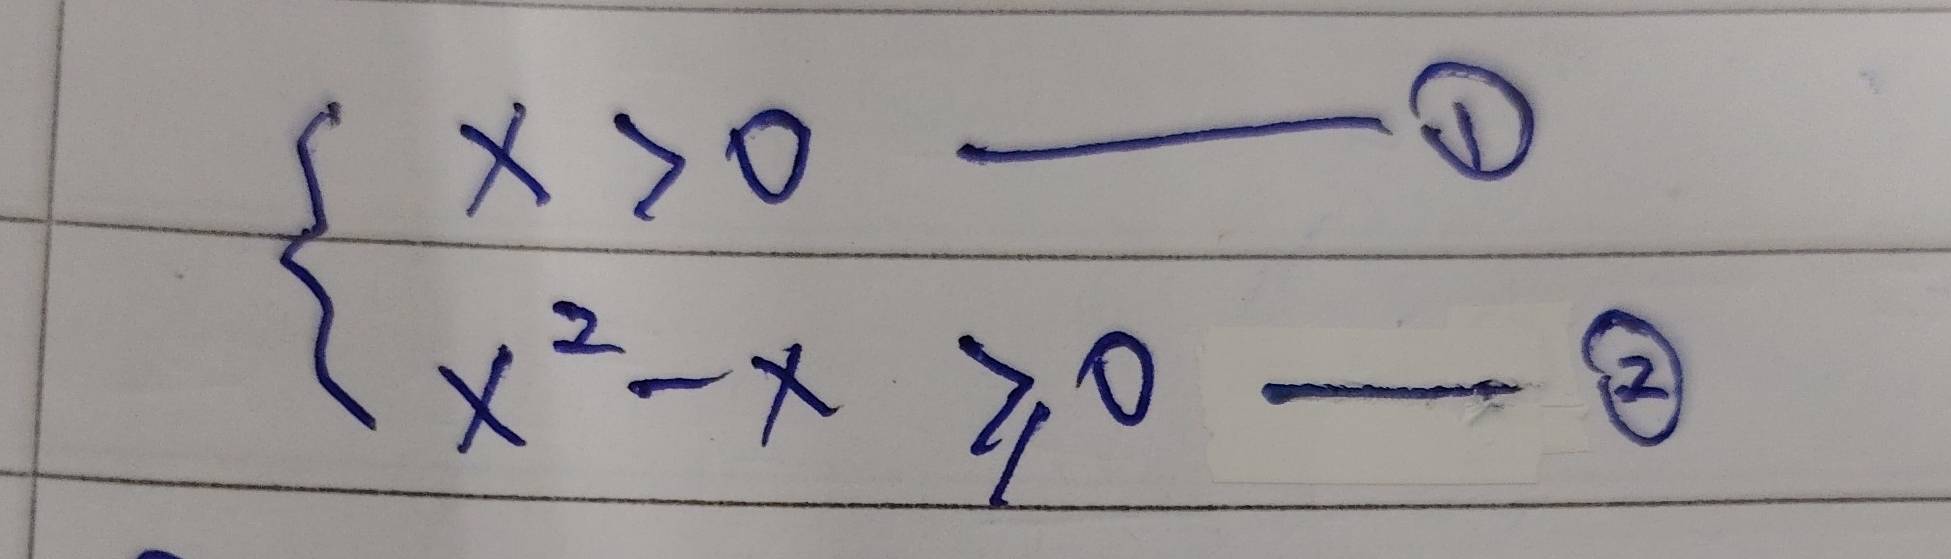 { x > 0 —— ①
x² - x ⩾ 0 —— ②